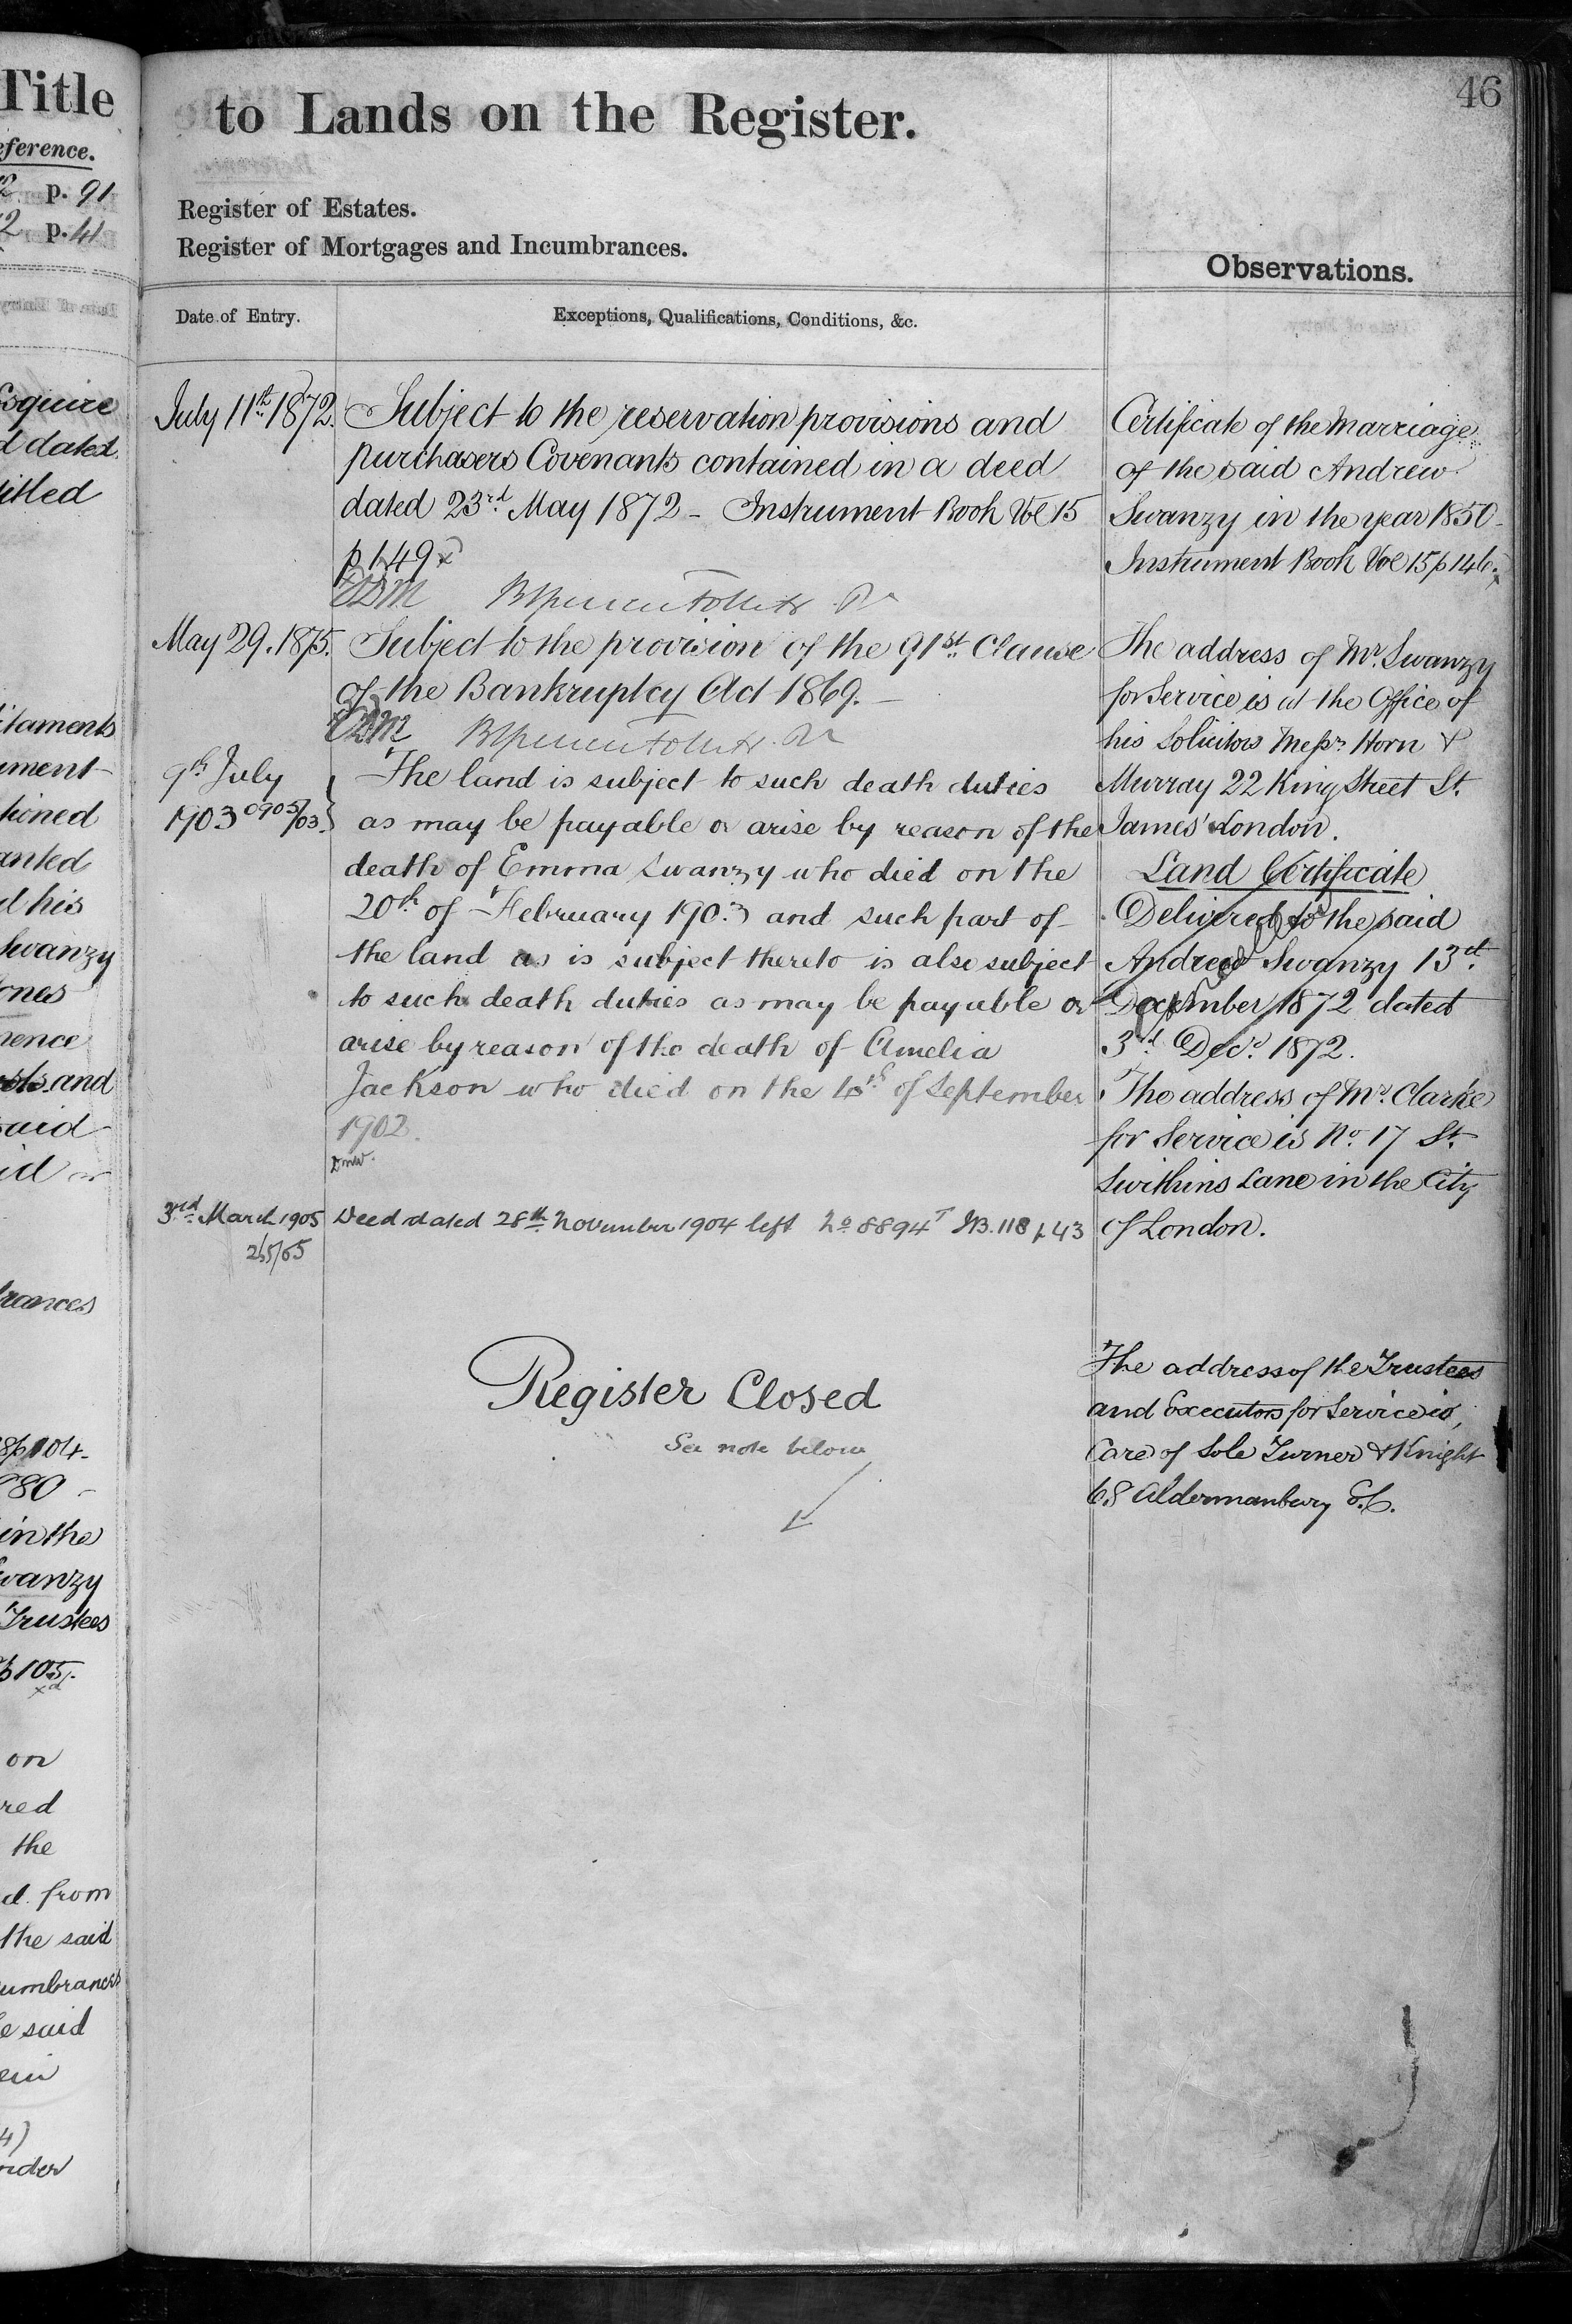 Title
eference.
p. 91
2 p. 41
Esquire
d dated
titled
itaments
ument
tioned
anted
d his
Swanzy
ones
rence
sts and
said
id
rances
8 p 104
880
in the
Swanzy
Trustees
p 105.
on
red
the
d from
the said
cumbrances
e said
ein
4)
nder
46
to Lands on the Register.
Register of Estates.
Register of Mortgages and Incumbrances.
Observations.
Date of Entry.
Exceptions, Qualifications, Conditions, &c.
July 11th 1872.
Subject to the reservation provisions and
purchasers Covenants contained in a deed
dated 23rd May 1872 - Instrument Book Vol 15
p 149
May 29. 1875.
Subject to the provision of the 91st Clause
of the Bankruptcy Act 1869. -
9th July
1903 0905/03.
The land is subject to such death duties
as may be payable or arise by reason of the
death of Emma Swanzy who died on the
20th of February 1903 and such part of
the land as is subject thereto is also subject
to such death duties as may be payable or
arise by reason of the death of Amelia
Jackson who died on the of September
1902.
DMW.
3rd March 1905
265/05
Deed dated 28th November 1904 left No 8894 T IB. 118 p 43
Register Closed
See note below
Certificate of the Marriage
of the said Andrew
Swanzy in the year 1850 -
Instrument Book Vol 15 p 146.
The address of Mr. Swanzy
for Service is at the Office of
his Solicitors Messrs Horn &
Murray 22 King Street St.
James' London.
Land Certificate
Delivered to the said
Andrew Swanzy 13th
December 1872 dated
3rd Decr. 1872.
The address of Mr. Clarke
for Service is No. 17 St.
Swithins Lane in the City
of London.
The address of the Trustees
and Executors for Service is,
Care of Sole Turner & Knight
68 Aldermanbury E.C.